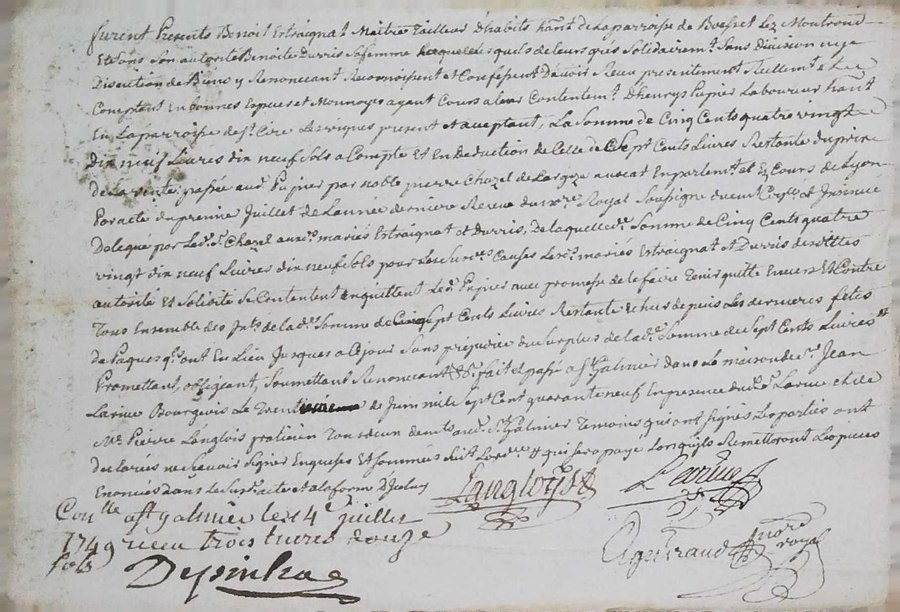 furent Presents Benoit Estraignat Maitre Tailleur D'habits hant. de La parroisse de Boisset Lez Montrond
Et sous Son autorité Benoite Durris Sa femme Lesquels quils de leurs grés Solidairemt. Sans Division ny
Discution de Biens y Renonceant Reconnoissent et Confessent D'avoir Receu presentement Reellemt. et
Comptent En bonnes Especes et Monnoyes ayant Cours a leur Contentemt. D'henrys Pupier Laboureur hant.
En La parroisse de st. Cire Les vignes present et acceptant, La Somme de Cinq Cents quatre vingt
dix neuf Livres dix neuf Sols a Compte Et En Deduction de Celle de Sept Cents Livres Restante du prix
de La vente passée aud. Pupier par noble pierre Chazel avocat En parlemt. et Es Cours de Lyon
Par acte du premier Juillet de Lannée derniere Receu du nre. Royal Soussigné
Delegue par Led. Sr. Chazel auxd. mariés Estraignat et Durris, De laquelle de. Somme de Cinq Cents quatre
vingt dix neuf Livres dix neuf sols pour Les Causes Lesd. mariés Estraignat et Durris desdittes
autorité et Solidité Se Contentent En quittent Led. Pupier avec promesse de le faire Tenir quitte Envers Et Contre
Tous Ensemble des Ints. de lade. Somme de Sept Cents Livres Restante Echus depuis Les dernieres fetes
de Paques qui ont Eu Lieu Jusques a Ce jour Sans prejudice du Surplus de lade. Somme de Sept Cents Livres
Promettant, obligeant, Soumettant Renonceant &a. fait et passé a st. Galmier dans La maison de Sr. Jean
Larive Bourgeois Le Trente de Juin mille Sept Cent quarante neuf En presence dud. Sr. Larive et de
Me. Pierre Langlois praticien Tous deux demts. aud. St. Galmier Temoins qui ont Signés Les parties ont
declarés ne Scavoir Signer Enquises Et Sommées qui Sera payé Lorsquils Remettront Les pieces
Enoncées dans Le Susd. acte et a la forme D'Icelui
Langloyst
Larrive
Conlle. a St galmier le 4e. juillet
1749 receu trois livres douze
sols
nore. royal